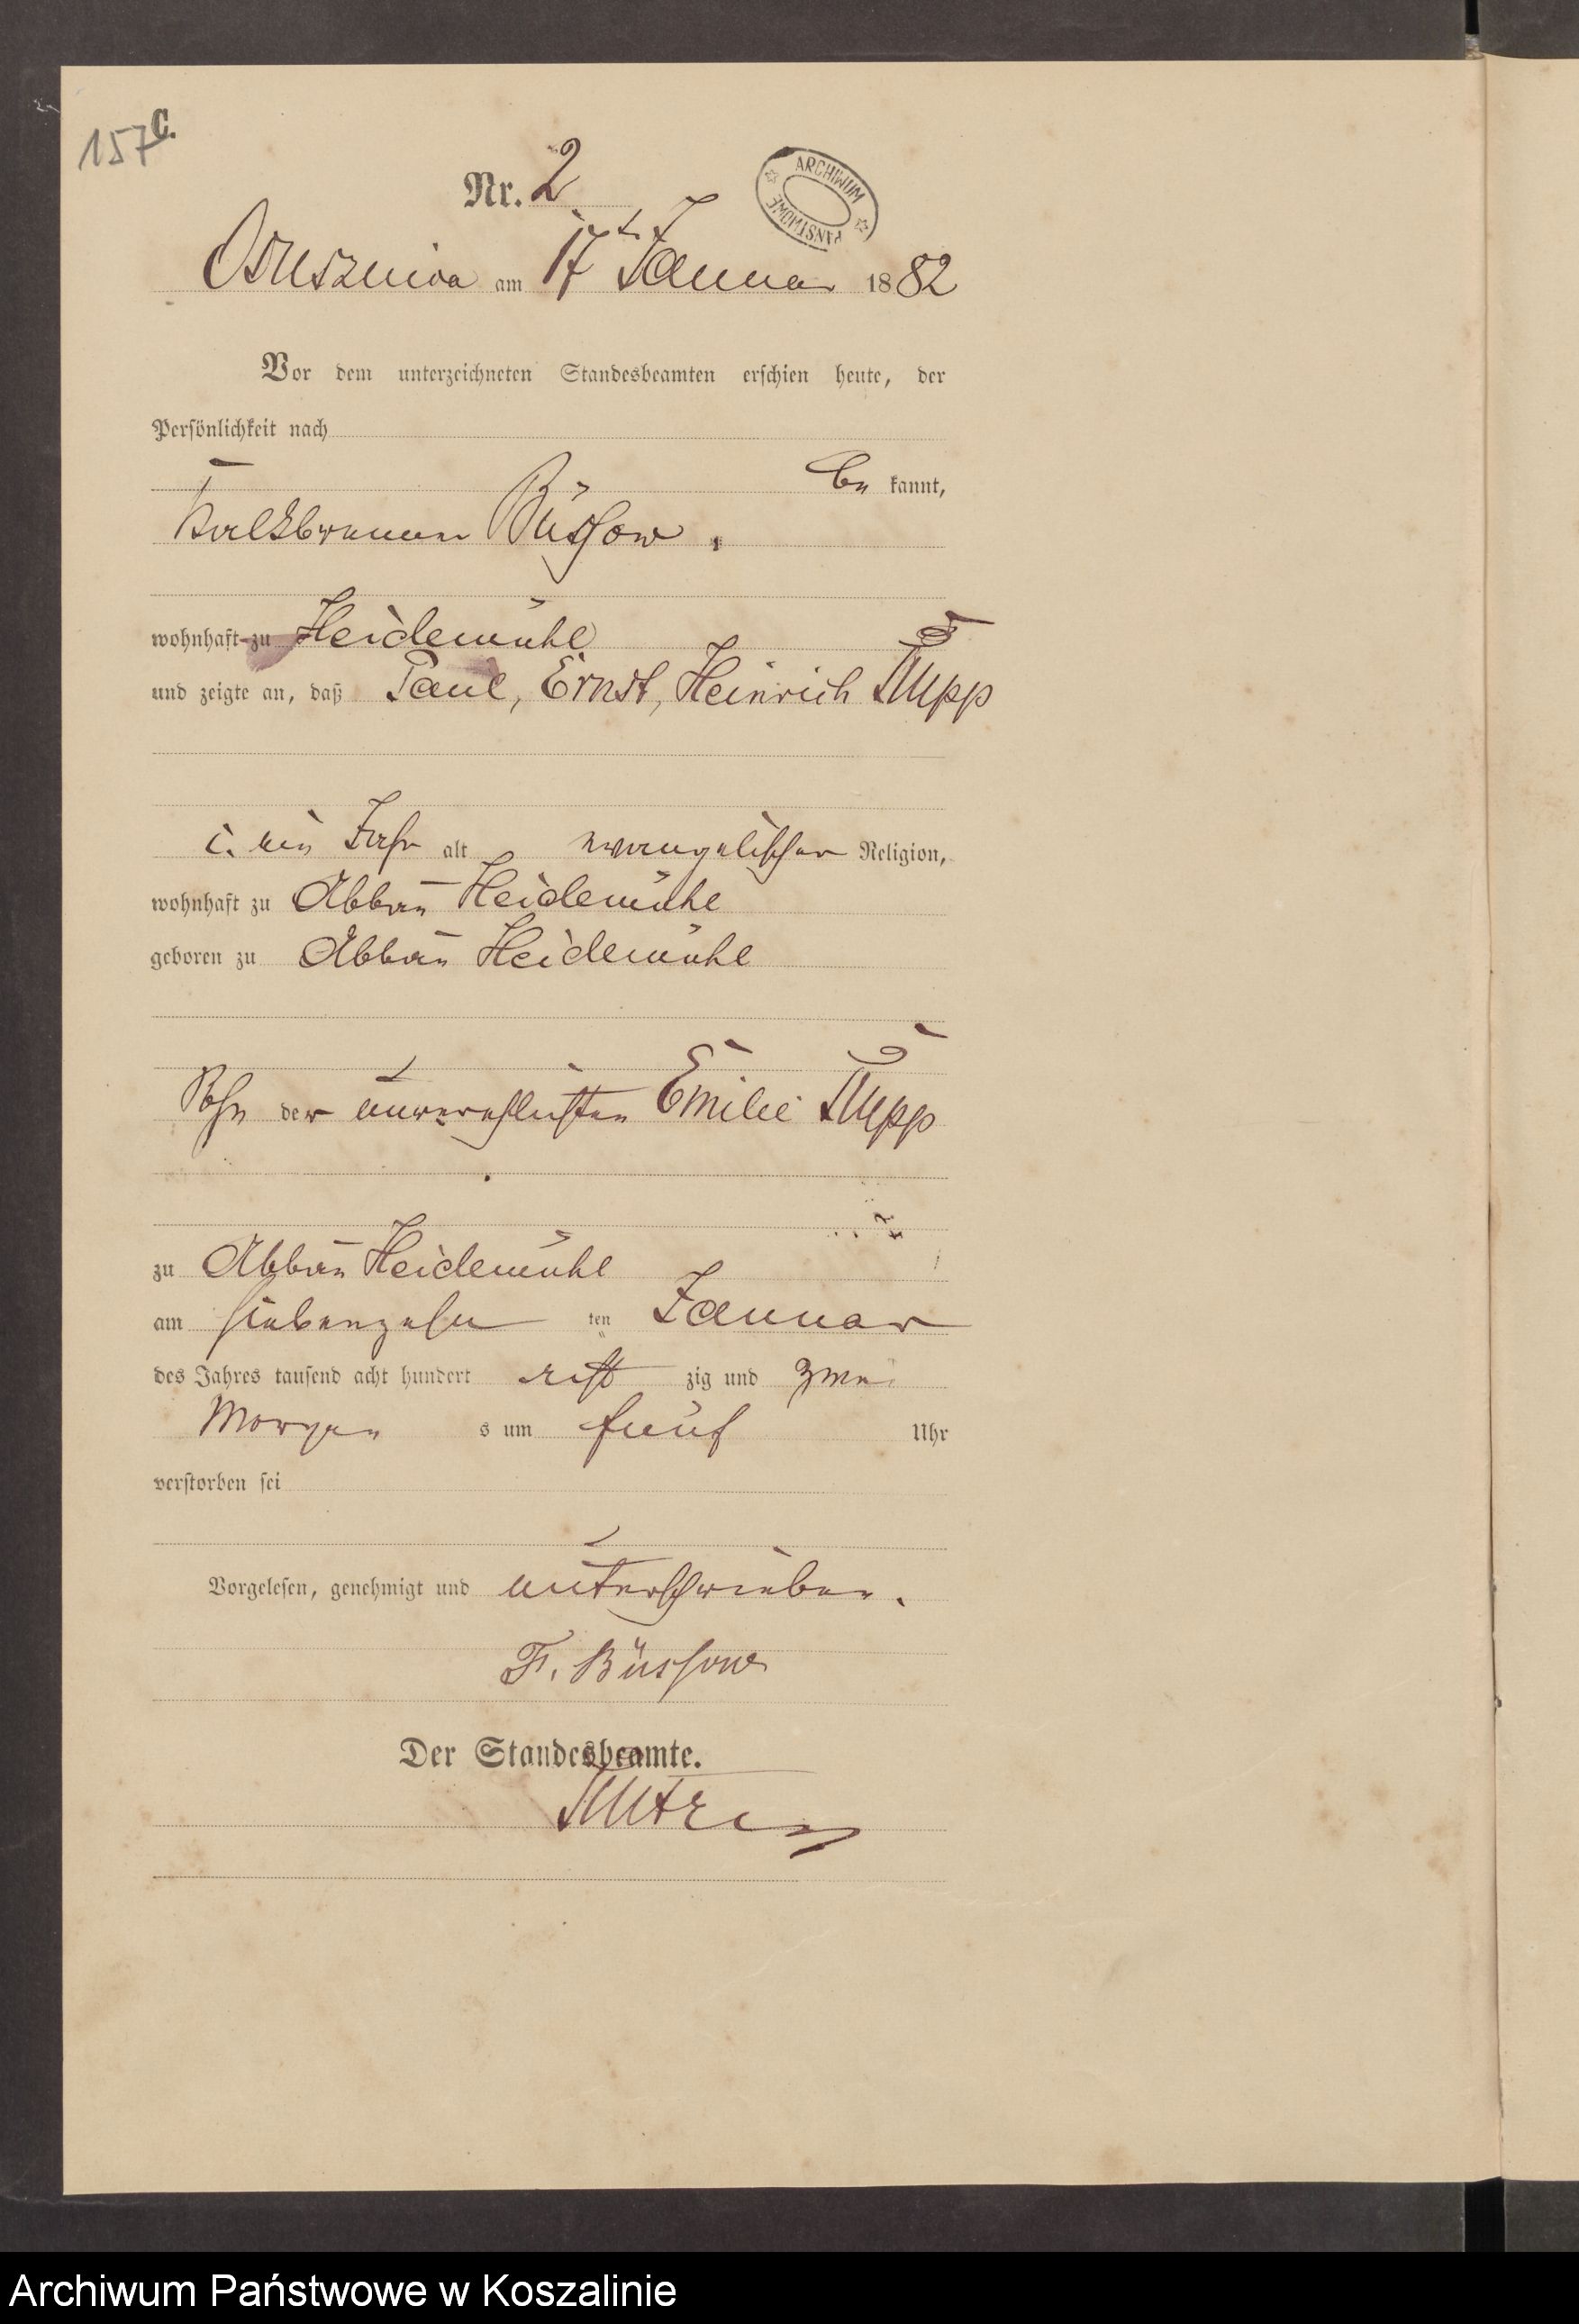 157
C.
Nr. 2
ARCHIWUM PAŃSTWOWE
Osusznica am 17t Januar 1882
Vor dem unterzeichneten Standesbeamten erschien heute, der
Persönlichkeit nach
be kannt,
Kalkbrenner Büssow.
wohnhaft zu Heidemühl
und zeigte an, daß Paul, Ernst, Heinrich Rupp
ein Jahr alt evangelischer Religion,
wohnhaft zu Abbau Heidemühl
geboren zu Abbau Heidemühl
Sohn der unverehelichten Emilie Rupp
zu Abbau Heidemühl
am siebenzehn ten Januar
des Jahres tausend acht hundert acht zig und zwei
Morgen s um fünf Uhr
verstorben sei
Vorgelesen, genehmigt und unterschrieben.
F. Büssow
Der Standesbeamte.
Archiwum Państwowe w Koszalinie